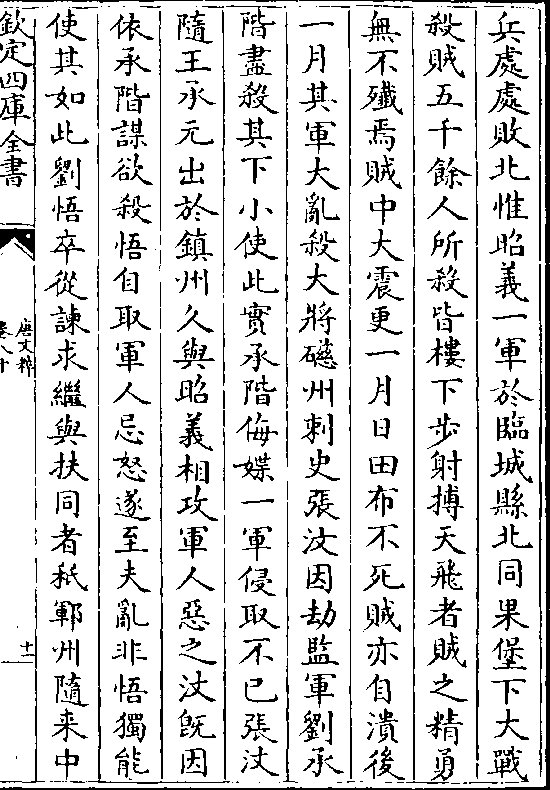 兵處處敗北惟昭義一軍於臨城縣北同果堡下大戰
殺賊五千餘人所殺皆樓下步射搏天飛者賊之精勇
無不殱焉賊中大震更一月日田布不死賊亦自潰後
一月其軍大亂殺大將磁州刺史張汶因劫監軍劉承
階盡殺其下小使此實承階侮媟一軍侵取不已張汶
隨王承元出於鎮州久與昭義相攻軍人惡之汶旣因
依承階謀欲殺悟自取軍人忌怒遂至大亂非悟獨能
使其如此劉悟卒從諫求繼與扶同者秖鄆州隨来中
欽定四庫全書
唐文粹
卷八十
十一